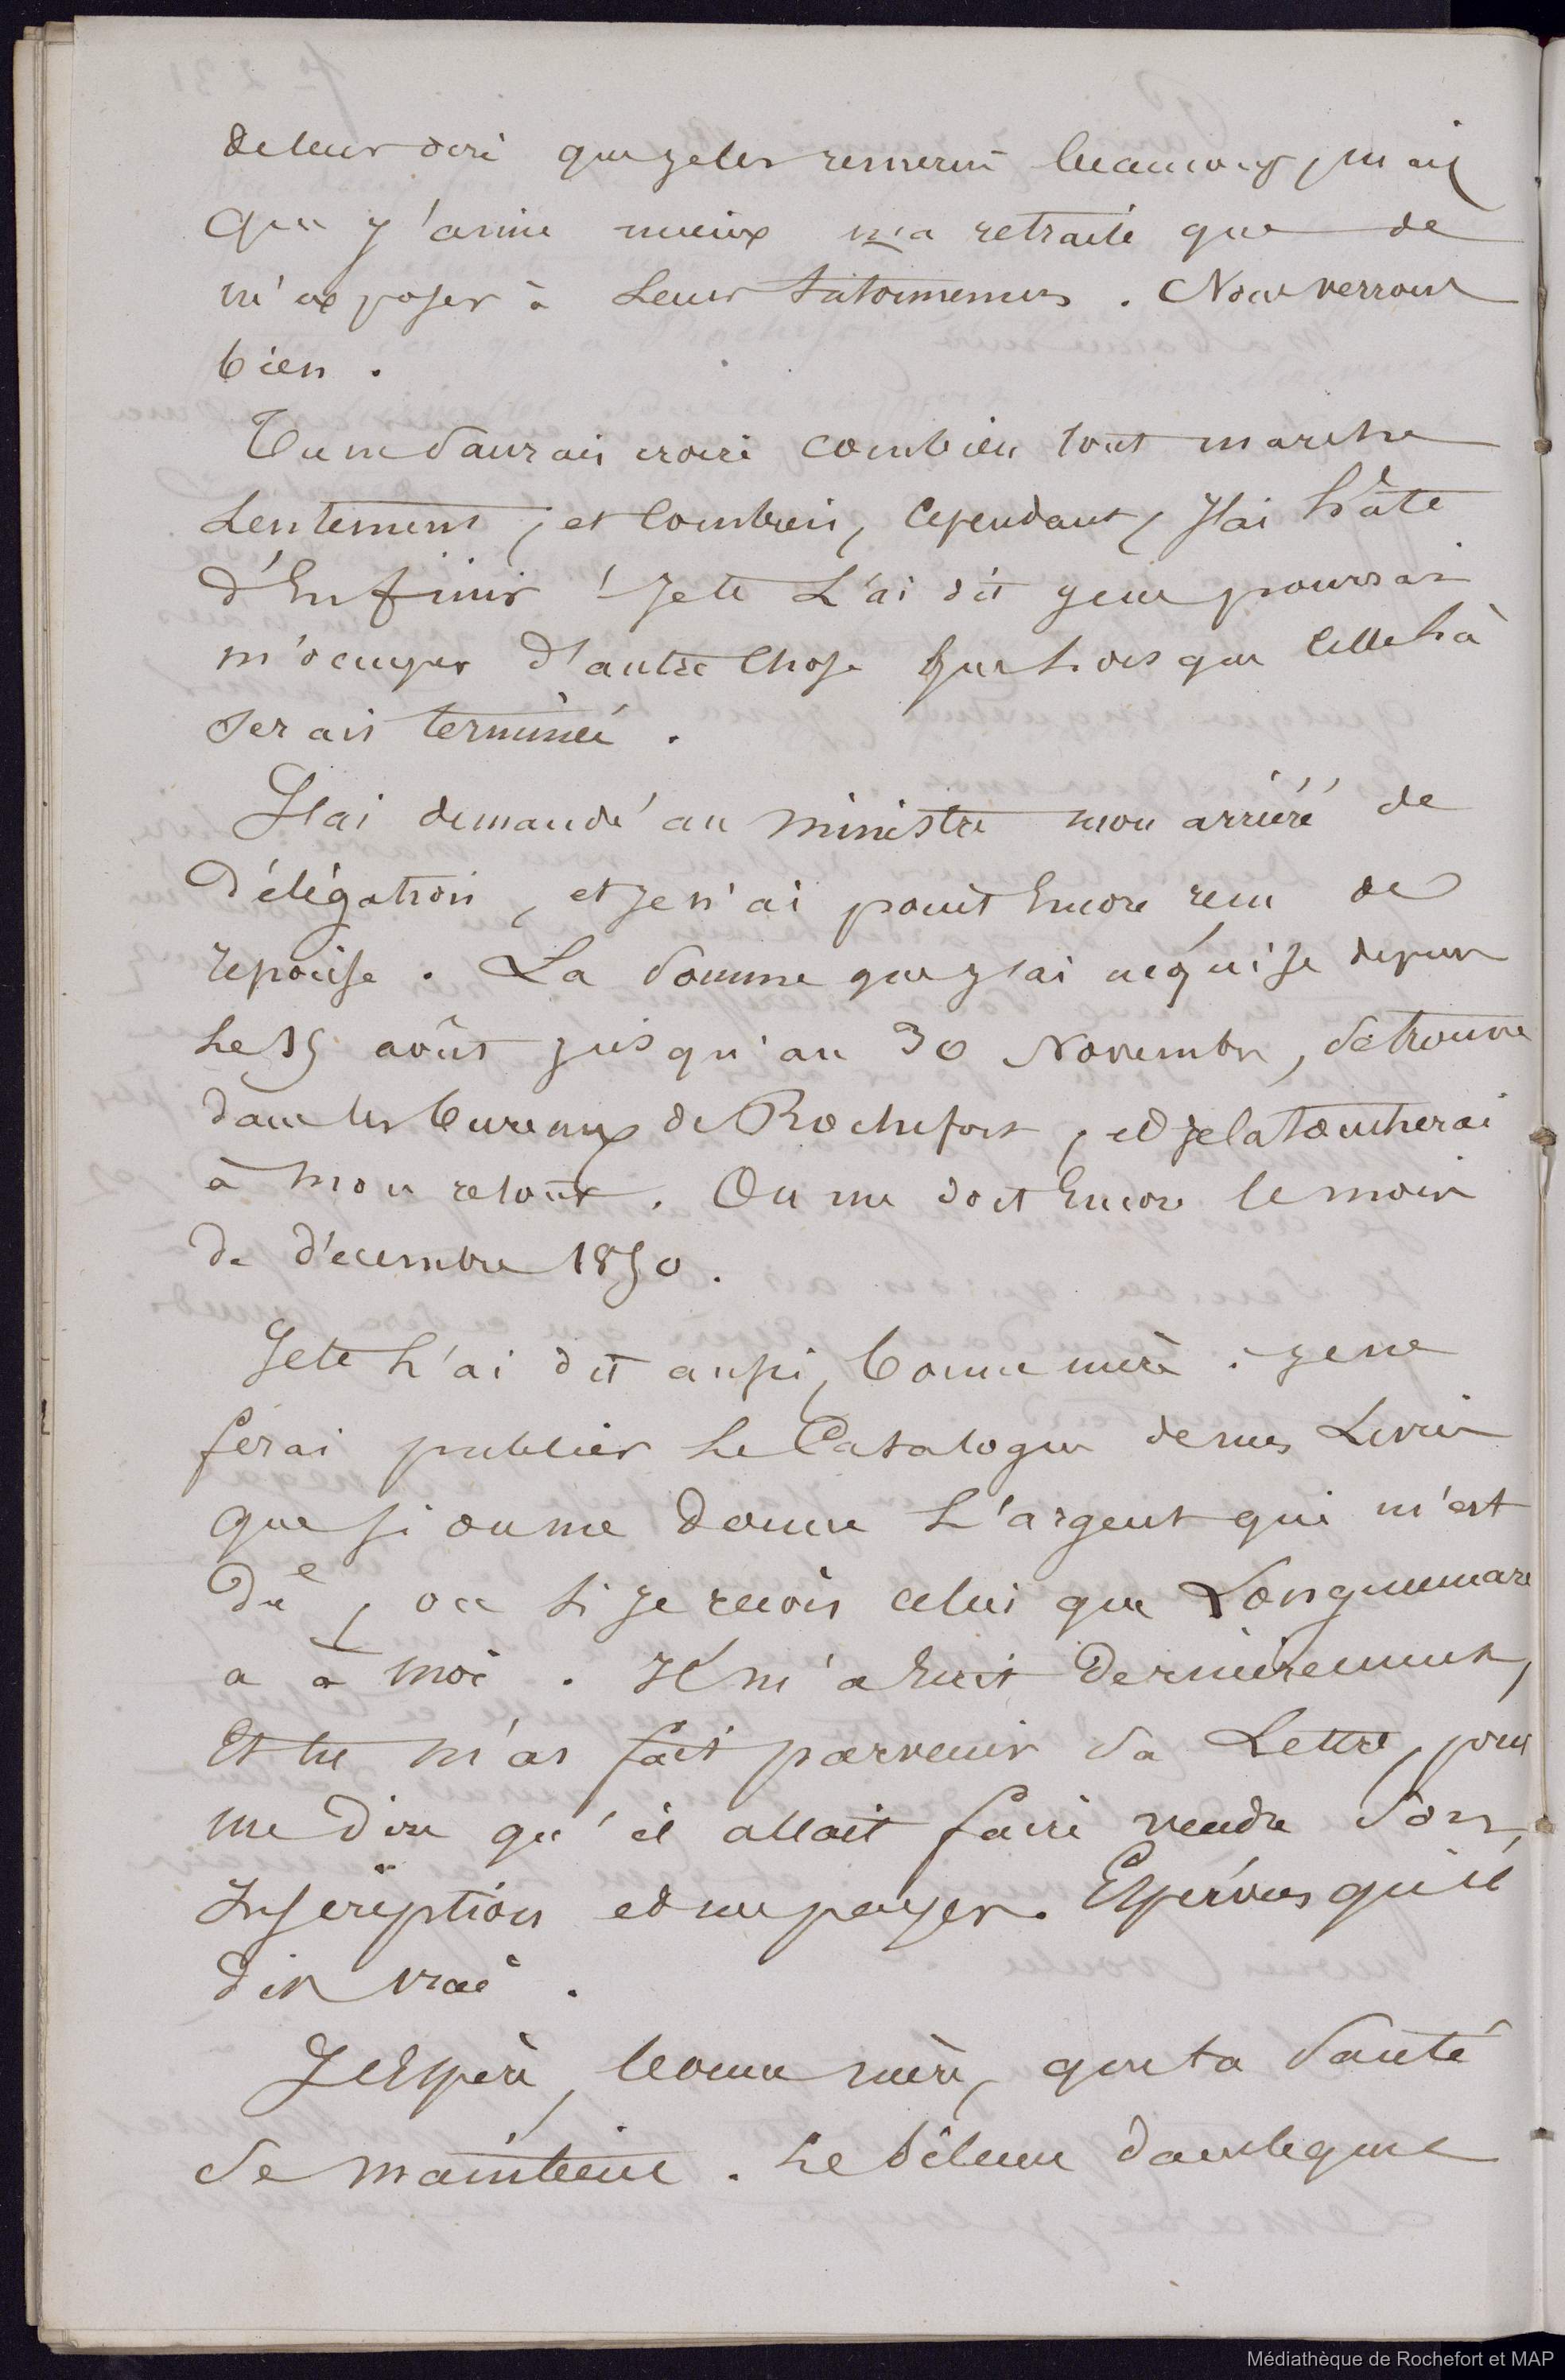 de leur dire que je les remercie beaucoup, mais
que j'aime mieux ma retraite que de
m'exposer à leurs tatonnements. Nous verrons
bien.
Tu ne saurais croire combien tout marche
Lentement, et combien, cependant, J'ai hâte
d'En finir ! Je te L'ai dit je ne pourrai
m'occuper d'autre chose que Lorsque celle là
serais terminée.
J'ai demandé au ministre mon arriéré de
Délégation, et Je n'ai point Encore reçu de
réponse. La somme que j'ai acquise depuis
Le 15 août jusqu'au 30 Novembre, se trouve
dans les bureaux de Rochefort, et je la toucherai
à mon retour. On me doit Encore le mois
de décembre 1850.
Je te L'ai dit aussi, bonne mère : je ne
ferai publier Le Catalogue de mes Livres
que si on me donne L'argent qui m'est
Dû, ou si je reçois celui que Longuemare
a à moi. Il m'a Ecrit Dernièrement,
Et tu m'as fait parvenir sa Lettre, pour
me Dire qu'il allait faire vendre son
Inscription et me payer. Espérons qu'il
dit vrai.
J'Espère, bonne mère, que ta santé
se maintient. Le silence dans lequel
Médiathèque de Rochefort et MAP